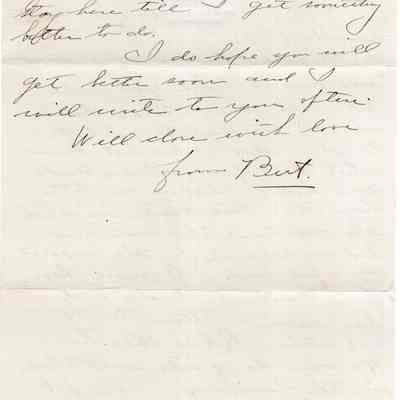 stay here till I get something
better to do.
I do hope you will
get better soon and I
will write to you often.
Will close with love
from Bert.